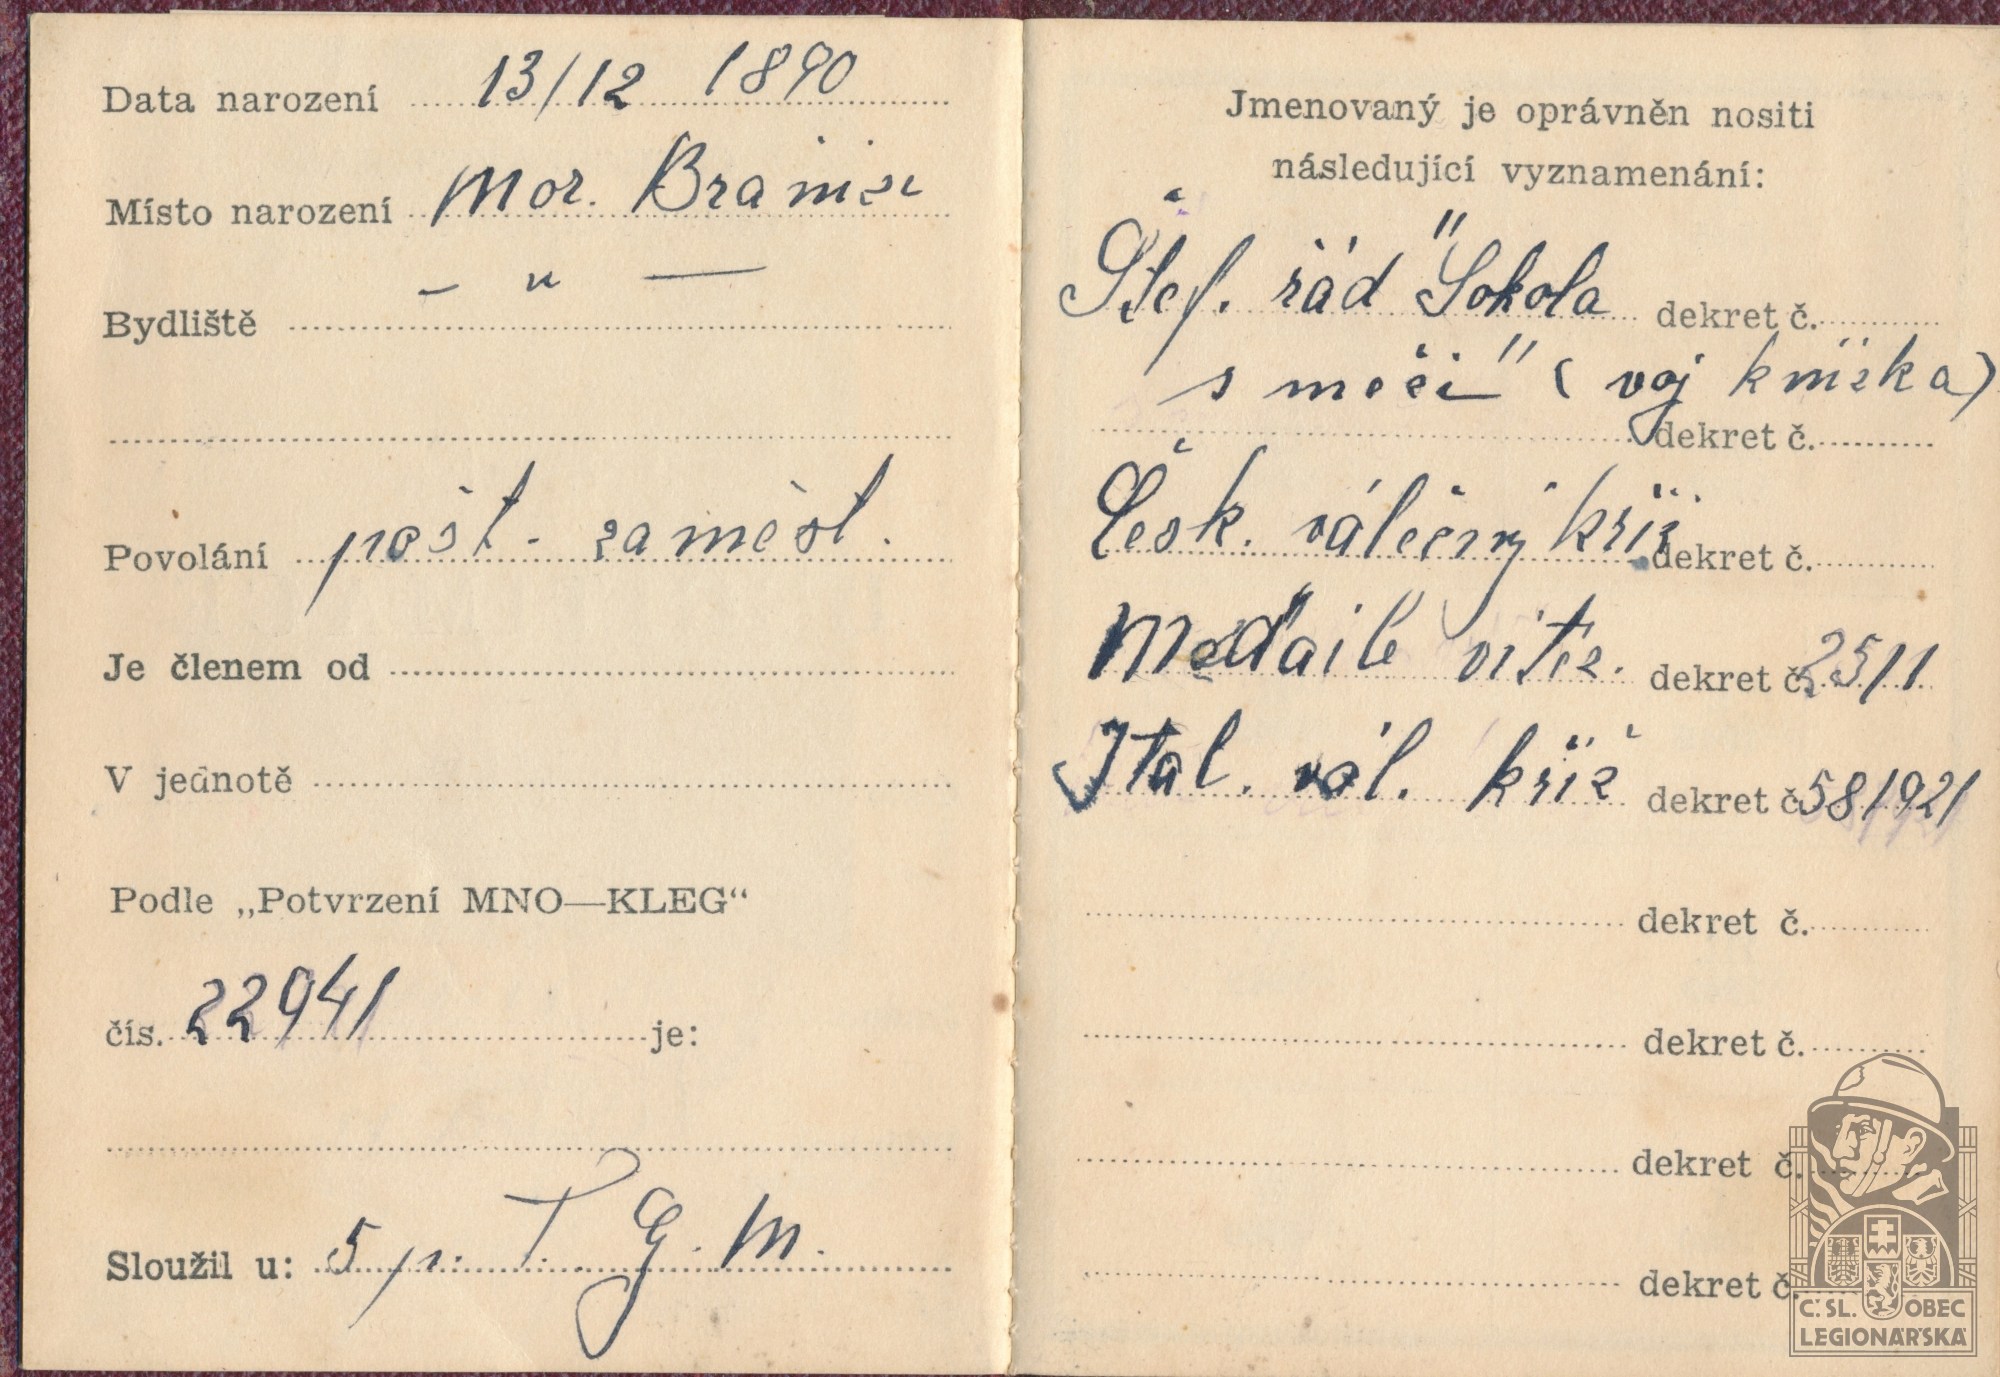 Data narození 13/12 1890
Místo narození Mor. Branice
Bydliště – " —
Povolání pošt. zaměst.
Je členem od
V jednotě
Podle „Potvrzení MNO—KLEG“
čís. 22941 je:
Sloužil u: 5 p. T. G. M.
Jmenovaný je oprávněn nositi
následující vyznamenání:
Štef. řád "Sokola dekret č.
s meči" (voj knížka)
dekret č.
Česk. válečný kříž dekret č.
Medaile vítěz. dekret č. 25/1
Ital. vál. kříž dekret č. 58/921
dekret č.
dekret č.
dekret č.
dekret č.
Č. SL. OBEC
LEGIONÁŘSKÁ